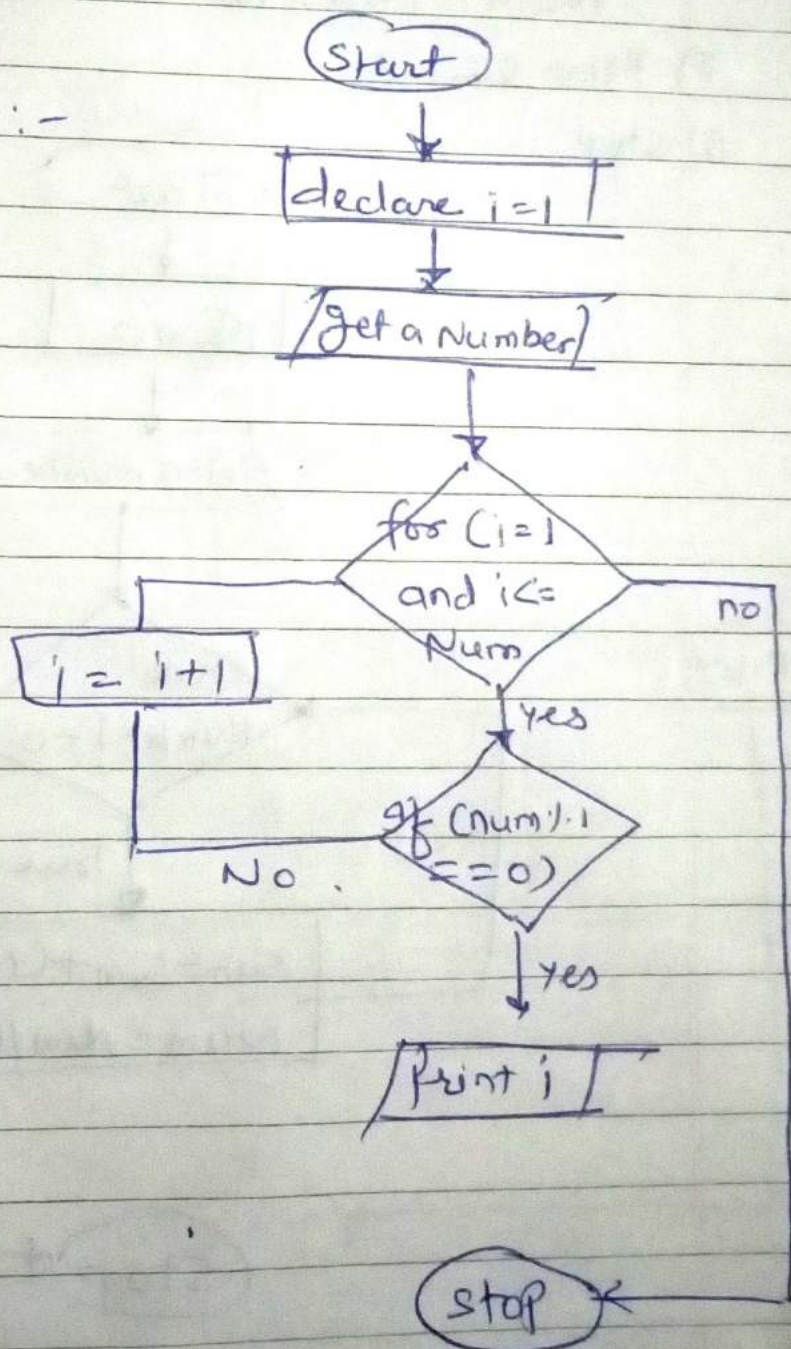 Start
:-
declare i=1
get a Number
for (i=1
and i<=
Num
no
i = i+1
yes
if (num%i
==0)
No.
yes
Print i
Stop